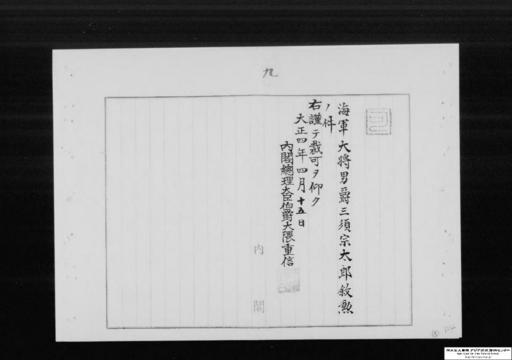 九
海軍大将男爵三須宗太郎敘勲
ノ件
右謹テ裁可ヲ仰ク
大正四年四月十五日
内閣總理大臣伯爵大隈重信
内閣